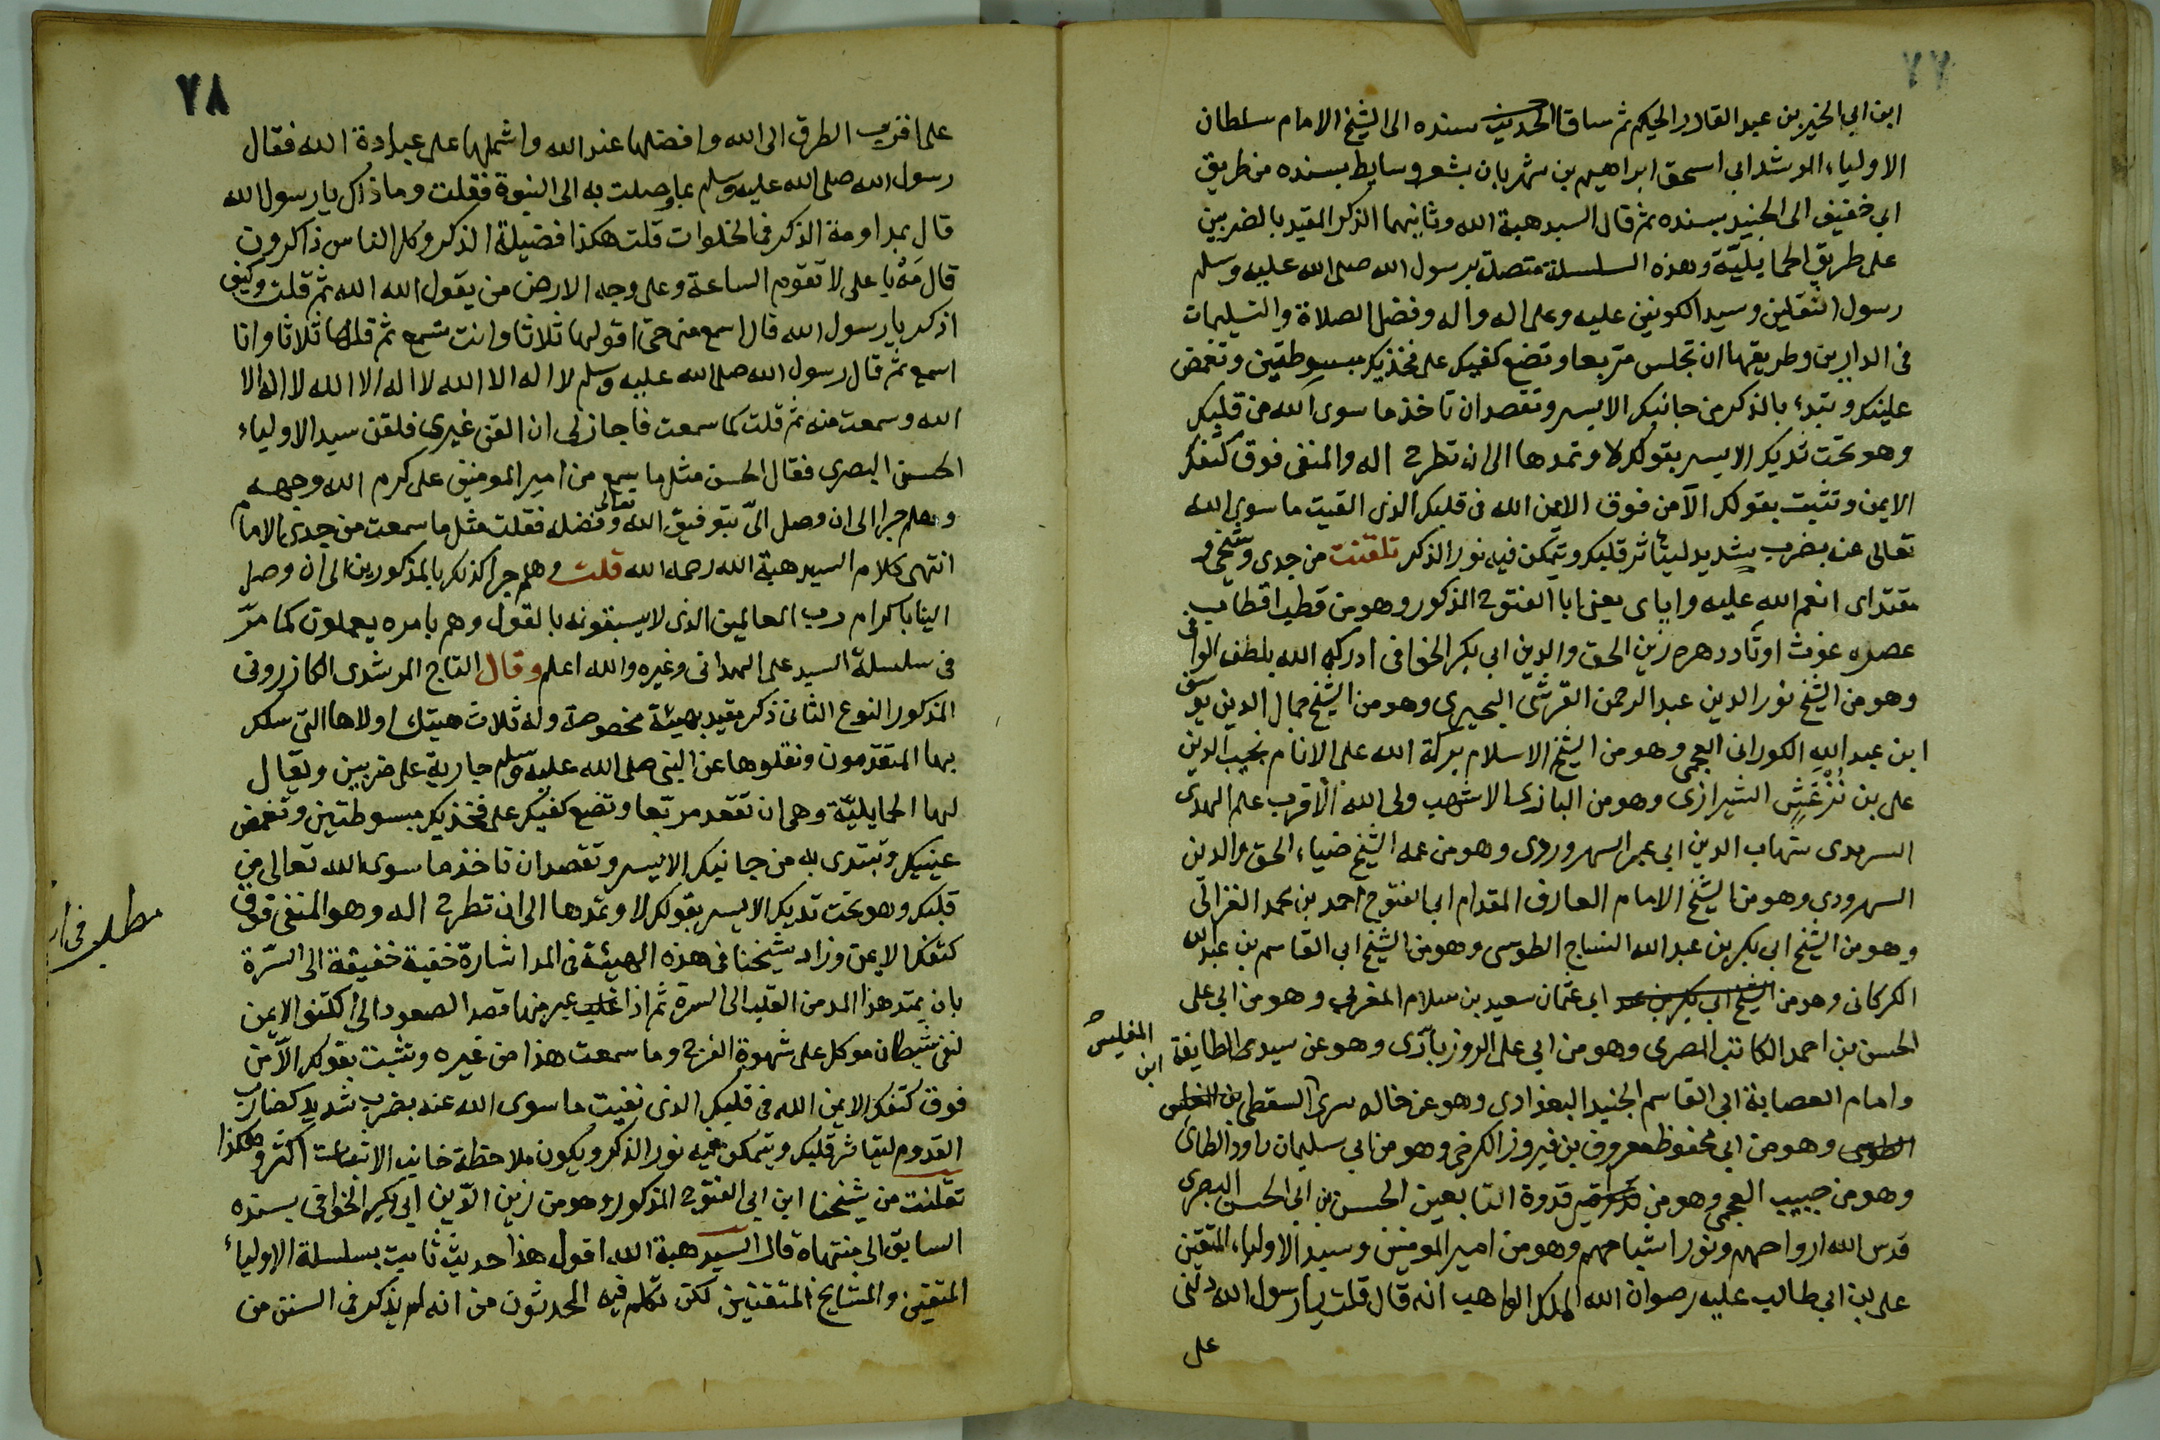 ٧٧
ابن ابي الخير بن عبد القادر الحكيم ثم ساق الحديث سنده الى الشيخ الامام سلطان
الاولياء المرشد ابي اسحق ابراهيم بن شهريان بشعر وسايط بسنده من طريق
ابي خفيف الى الجنيد بسنده ثم قال السيد هبة الله وثانيهما الذكر المقيد بالضربين
على طريق الحمايليّة وهذه السلسلة متصلة برسول الله صلى الله عليه وسلم
رسول الثقلين وسيد الكونين عليه وعلى اله واله وفضل الصلاة والتسليمات
في الدارين وطريقها ان تجلس متربعا وتضع كفيك على فخذيك مبسوطتين وتغمض
عينيك وتبدء بالذكر من جانبك الايسر وتقصد ان تاخذ ما سوى الله من قلبك
وهو تحت ثديك الايسر بقولك لا وتمدها الى ان تطرح اله والمنفى فوق كتفك
الايمن وتثبت بقولك الا من فوق الايمن الله في قلبك الذى القيت ما سوى الله
تعالى عنه بضرب شديد ليتاثر قلبك ويتمكن فيه نور الذكر تلقنت من جدى وشيخى و
مقتداى انعم الله عليه واياى يعنى ابا الفتوح المذكور وهو من قطب اقطاب
عصره غوث اوتاد دهره زين الحق والدين ابي بكر الخوافى ادركه الله بلطفه الوافى
وهو من الشيخ نور الدين عبد الرحمن القرشى البحيرى وهو من الشيخ جمال الدين يوسف
ابن عبد الله الكورانى العجمى وهو من الشيخ الاسلام بركة الله على الانام نجيب الدين
على بن بُزْغَشٍ الشيرازى وهو من البازى الاشهب ولى الله الاقرب علم الهدى
السرمدى شهاب الدين ابي عمر السهروردى وهو من عمه الشيخ ضياء الحق والدين
السهرودى وهو من الشيخ الامام العارف المقدام ابي الفتوح احمد بن محمد الغزالى
وهو من الشيخ ابي بكر بن عبد الله النساج الطوسى وهو من الشيخ ابي القاسم بن عبد الله
الكركانى وهو من الشيخ ابي بكر بن عبد ابي عثمان سعيد بن سلام المغربي وهو من ابي على
الحسن بن احمد الكاتب المصرى وهو من ابي على الروزبآرى وهو عن سيدى الطايفة
ابن المغليس
وامام العصابة ابي القاسم الجنيد البغدادى وهو عن خاله سرى السقطى بن المغلس
الطوسى وهو من ابي محفوظ معروف بن فيروز الكرخى وهو من ابي سليمان داود الطائى
وهو من حبيب العجمى وهو من قدوة التابعين الحسن بن ابي الحسن البصرى
قدس الله ارواحهم ونور اشباحهم وهو من امير المومنين وسيد الاولياء المتقين
على بن ابي طالب عليه رضوان الله الملك الواهب انه قال قلت يا رسول الله دلنى
على
٧٨
على اقرب الطرق الى الله وافضلها عند الله واشملها على عبادة الله فقال
رسول الله صلى الله عليه وسلم بما وصلت به الى النبوة فقلت وما ذاك يا رسول الله
قال بمداومة الذكر فى الخلوات قلت هكذا فضيلة الذكر وكل الناس ذاكرون
قال مَهْ يا على لا تقوم الساعة وعلى وجه الارض من يقول الله الله ثم قلت وكيف
اذكر يا رسول الله قال اسمع منى حتى اقولها ثلاثا وانت تسمع ثم قلها ثلاثا وانا
اسمع ثم قال رسول الله صلى الله عليه وسلم لا اله الا الله لا اله الا الله لا اله الا
الله وسمعت منه ثم قلت كما سمعت فاجاز لى ان القن غيرى فلقن سيد الاولياء
الحسن البصرى فقال الحسن مثل ما سمع من امير المومنين على كرم الله وجهه
وهلم جرا الى ان وصل الىّ بتوفيق الله تعالى وفضله فقلت مثل ما سمعت من جدى الامام
انتهى كلام السيد هبة الله رحمه الله قلت وهلم جرا كذلك بالمذكورين الى ان وصل
الينا باكرام رب العالمين الذى لا يسبقونه بالقول وهم بامره يعملون كما مرّ
فى سلسلة السيد على الهمدانى وغيره والله اعلم وقال التاج المرشدى الكازرونى
المذكور النوع الثانى ذكر مقيد بهيئة مخصوصة وله ثلاث هيئات اولاها التى سلك
بها المتقدّمون ونقلوها عن النبى صلى الله عليه وسلم جارية على ضربين ويقال
لها الحمايليّة وهى ان تقعد مربعا وتضع كفيك على فخذيك مبسوطتين وتغمض
عينيك وتبتدى به من جانبك الايسر وتقصد ان تاخذ ما سوى الله تعالى من
قلبك وهو تحت ثديك الايسر بقولك لا وتمدها الى ان تطرح اله وهو المنفى فوق
مطلب فى
كتفك الايمن وزاد شيخنا فى هذه الهيئة فى المد اشارة خفية خفيفة الى السّرة
بان يمتد هذا المد من القلب الى السرة ثم اذا عبر منها قصد الصعود الى الكتف الايمن
لنفى شيطان موكل على شهوة الفرج وما سمعت هذا من غيره وتثبت بقولك الّا من
فوق كتفك الايمن الله فى قلبك الذى نفيت ما سوى الله عنه بضرب شديد كضارب
القدوم ليتاثر قلبك ويتمكن فيه نور الذكر ويكون ملاحظة جانب الاثبات اكثر وهكذا
تلقنت من شيخنا ابن ابي الفتوح المذكور وهو من زين الدّين ابي بكر الخوافى بسنده
السابق الى منتهاه قال السيد هبة الله اقول هذا حديث ثابت بسلسلة الاولياء
المتقين والمشايخ المتقنين لكن تكلم فيه المحدثون من انه لم يذكر فى السنن من